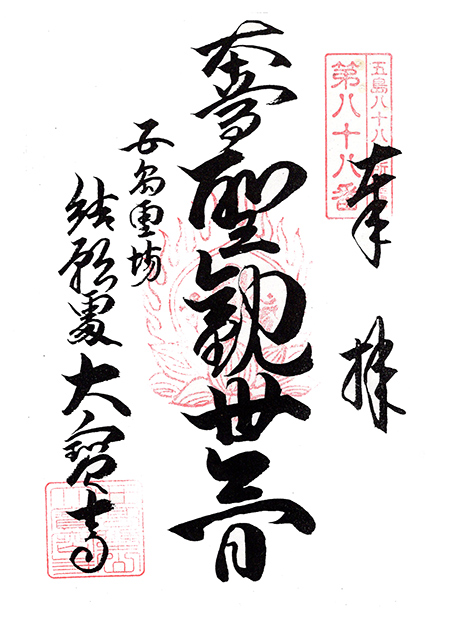 五島八十八
第八十八番
奉拝
本尊聖観世音
五島霊場
結願処大寶寺